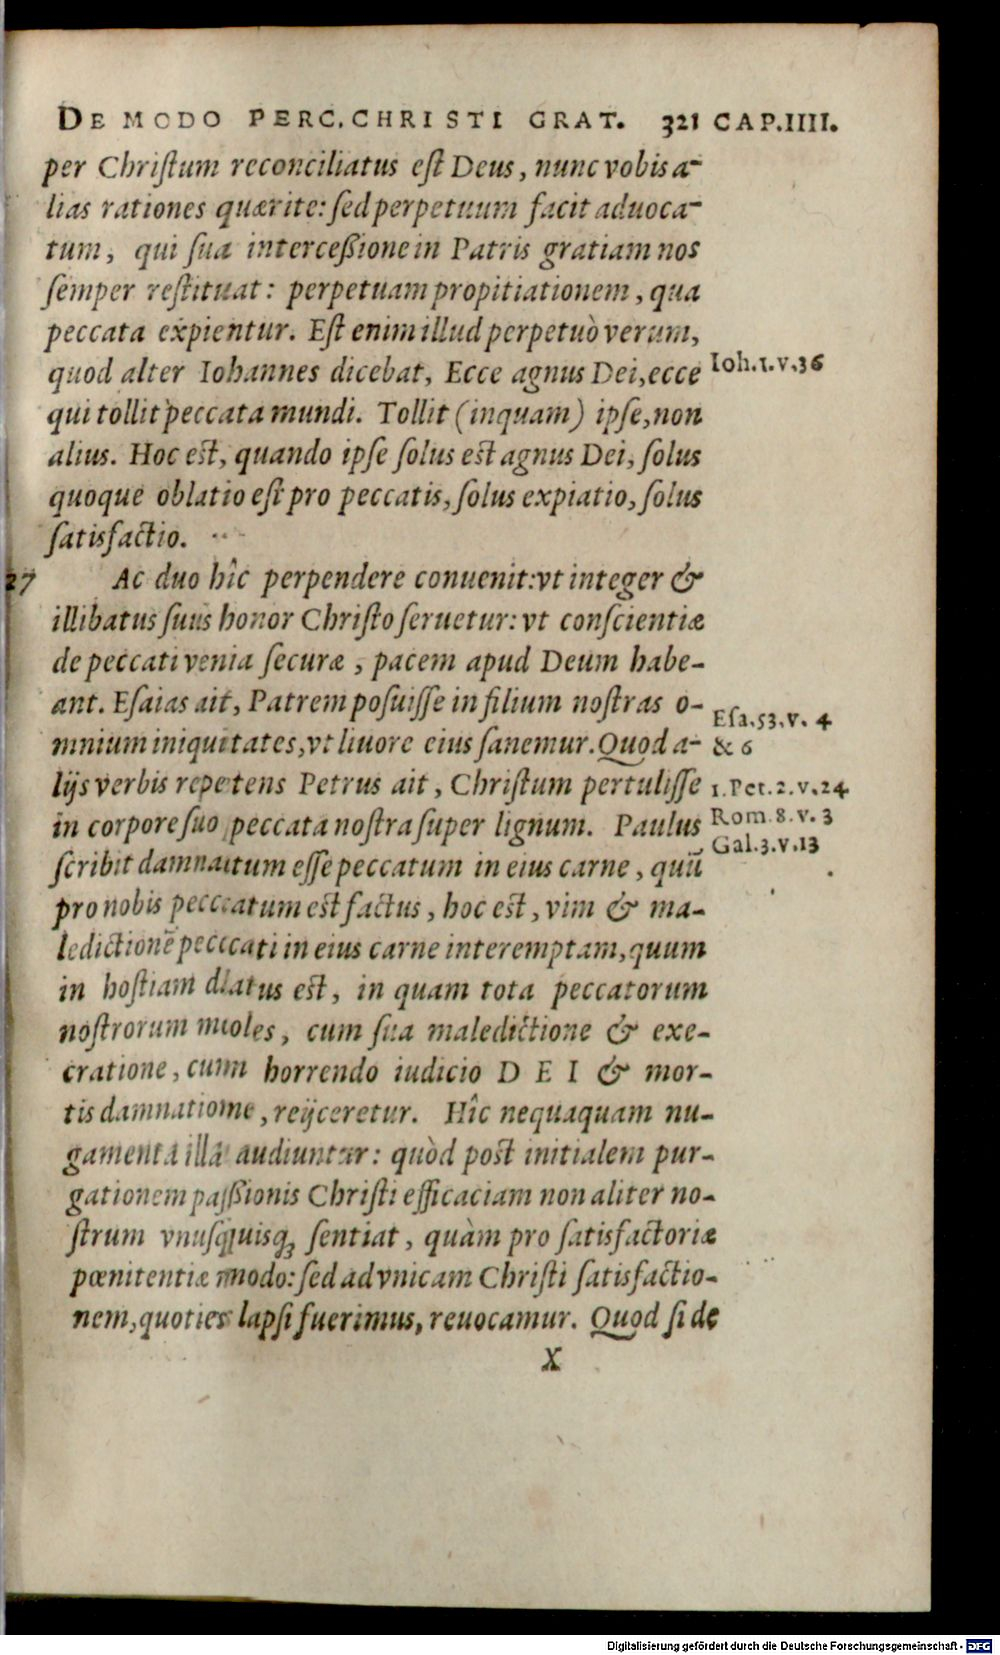 DE MODO PERC. CHRISTI GRAT. 321 CAP. IIII.
per Christum reconciliatus est Deus, nunc vobis a-
lias rationes quærite: sed perpetuum facit aduoca-
tum, qui sua intercessione in Patris gratiam nos
semper restituat: perpetuam propitiationem, qua
peccata expientur. Est enim illud perpetuò verum,
quod alter Iohannes dicebat, Ecce agnus Dei, ecce
Ioh. 1. v. 36
qui tollit peccata mundi. Tollit (inquam) ipse, non
alius. Hoc est, quando ipse solus est agnus Dei, solus
quoque oblatio est pro peccatis, solus expiatio, solus
satisfactio.
27 Ac duo hîc perpendere conuenit: vt integer &
illibatus suus honor Christo seruetur: vt conscientiæ
de peccati venia securæ, pacem apud Deum habe-
ant. Esaias ait, Patrem posuisse in filium nostras o-
Esa. 53. v. 4
mnium iniquitates, vt liuore eius sanemur. Quod a-
& 6
lijs verbis repetens Petrus ait, Christum pertulisse
1. Pet. 2. v. 24
in corpore suo peccata nostra super lignum. Paulus
Rom. 8. v. 3
Gal. 3. v. 13
scribit damnatum esse peccatum in eius carne, quū
pro nobis peccatum est factus, hoc est, vim & ma-
ledictionē peccati in eius carne interemptam, quum
in hostiam datus est, in quam tota peccatorum
nostrorum moles, cum sua maledictione & exe-
cratione, cum horrendo iudicio DEI & mor-
tis damnatione, reijceretur. Hîc nequaquam nu-
gamenta illa audiuntur: quòd post initialem pur-
gationem passionis Christi efficaciam non aliter no-
strum vnusquisq; sentiat, quàm pro satisfactoriæ
pœnitentiæ modo: sed ad vnicam Christi satisfactio-
nem, quoties lapsi fuerimus, reuocamur. Quod si de
X
Digitalisierung gefördert durch die Deutsche Forschungsgemeinschaft - DFG